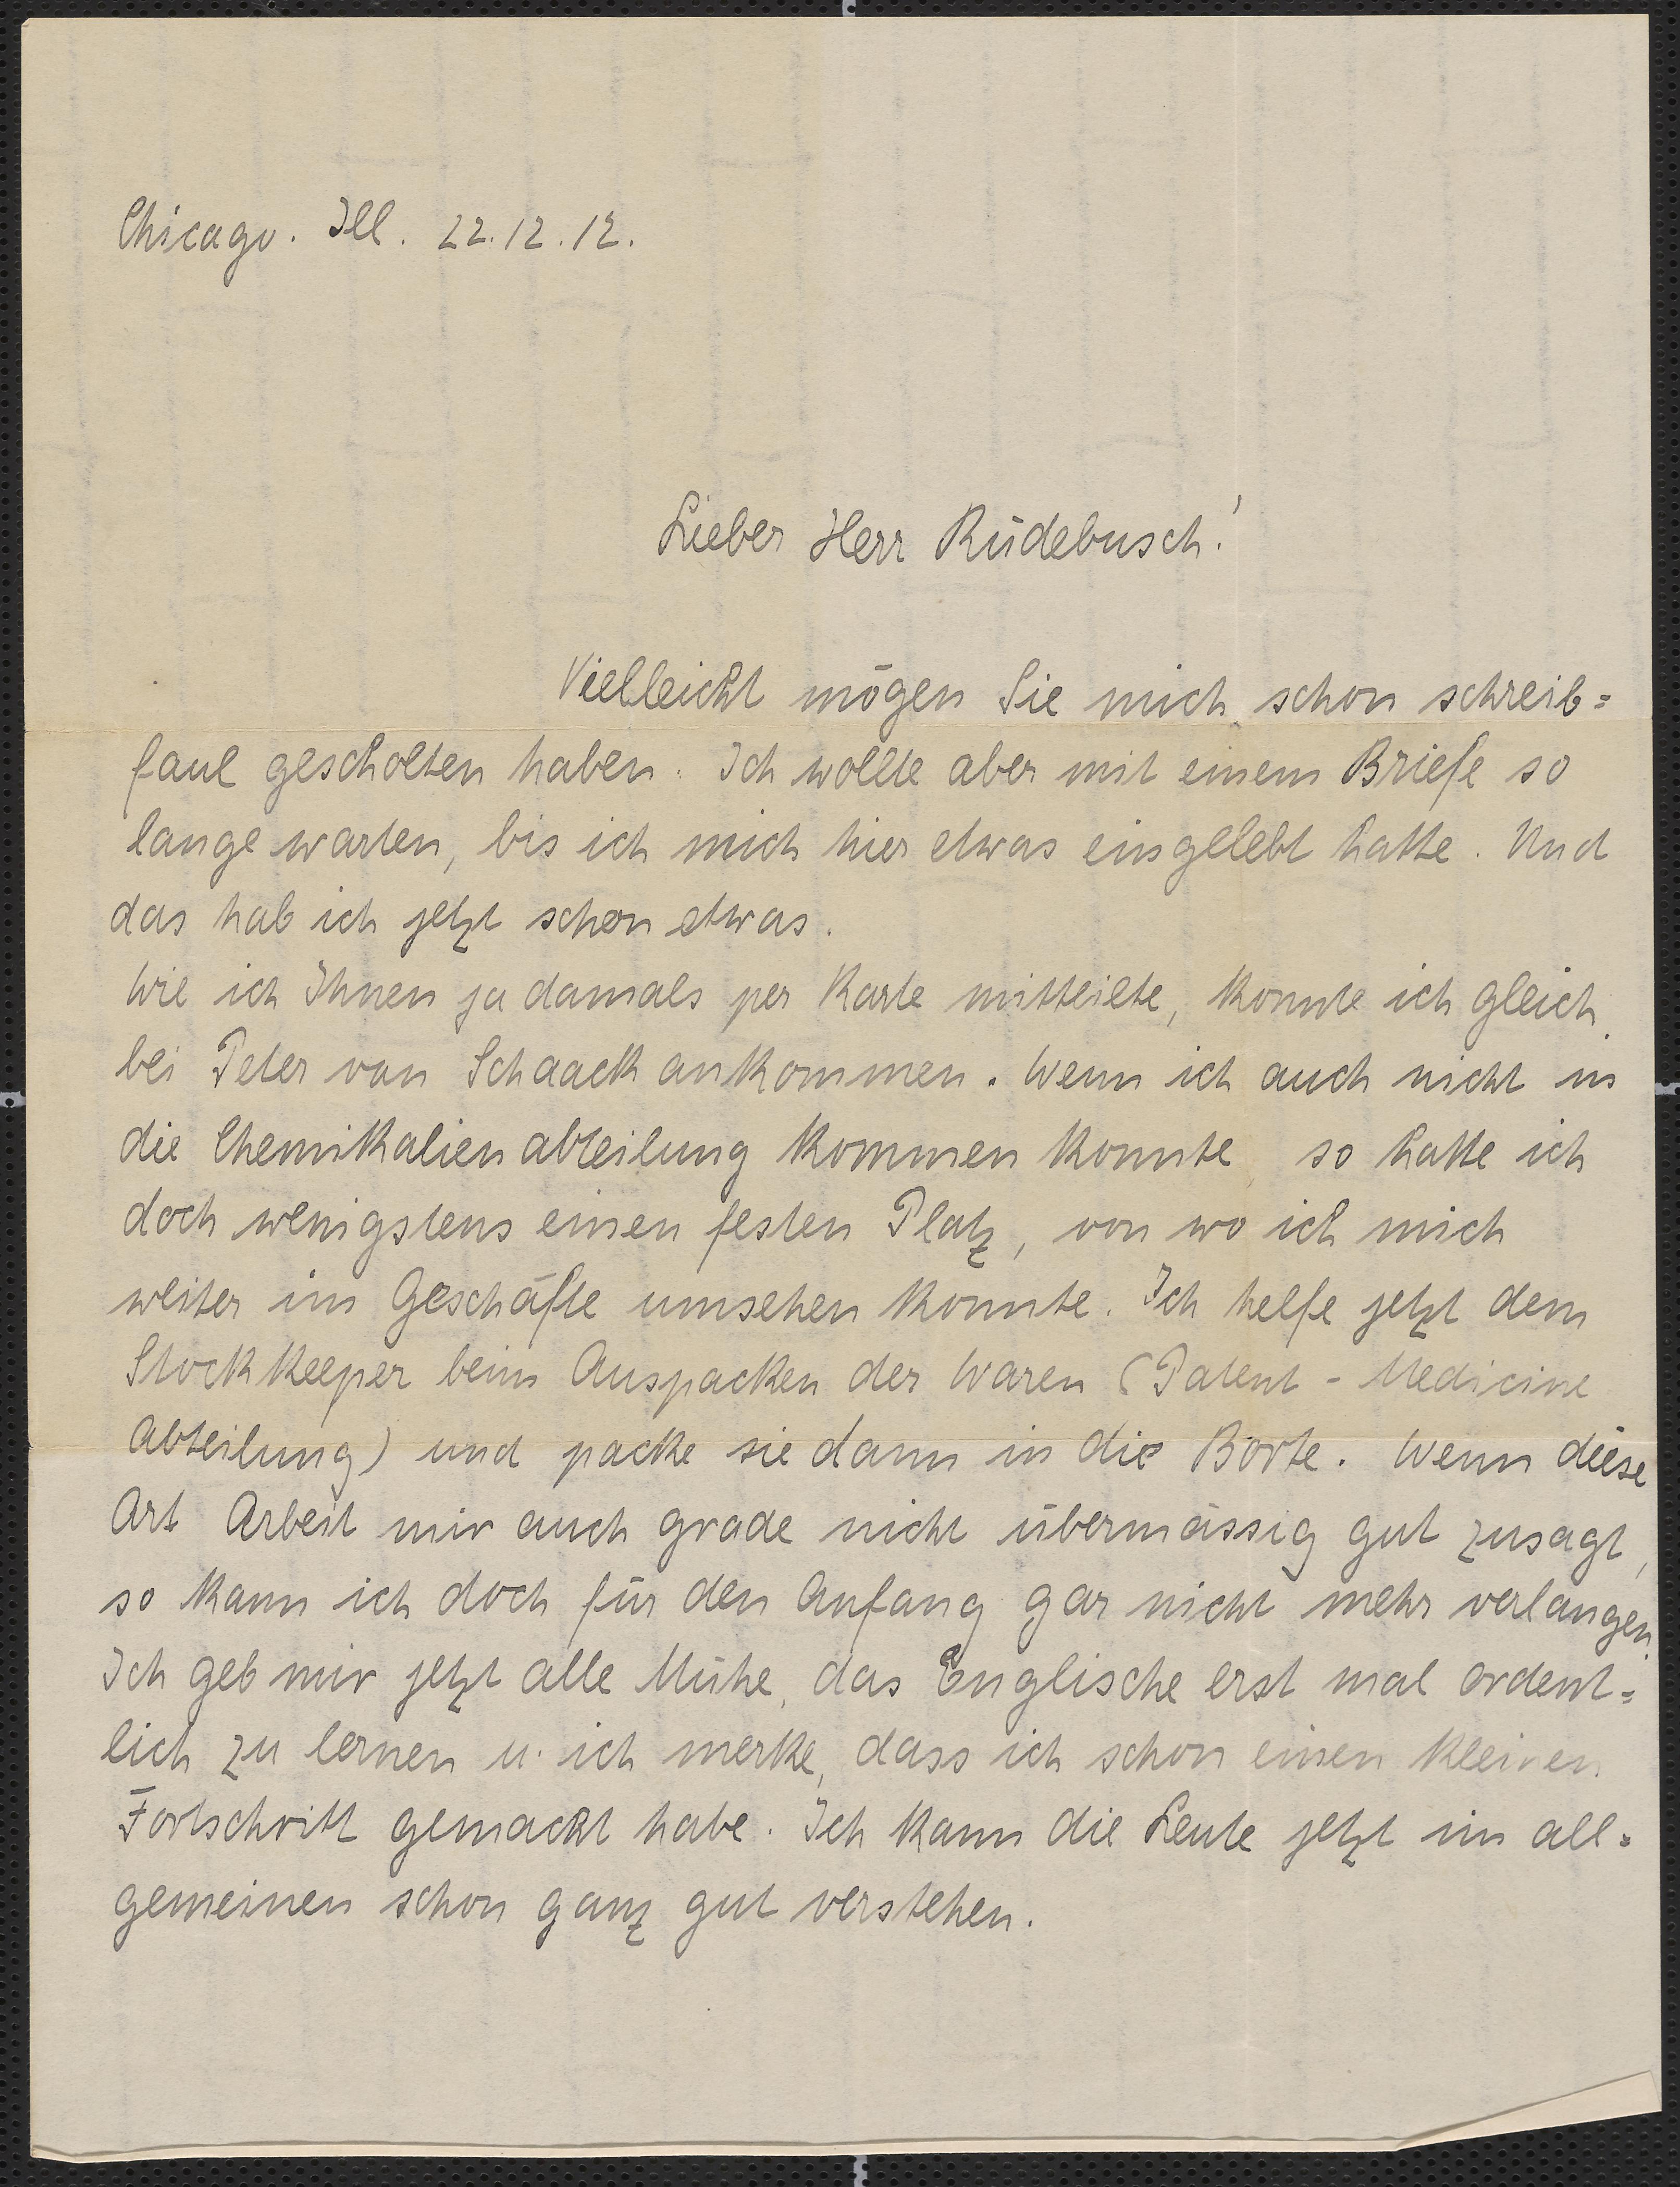 Chicago. Ill. 22.12.12.
Lieber Herr Rüdebusch!
Vielleicht mögen Sie mich schon schreib=
faul gescholten haben. Ich wollte aber mit einem Briefe so
lange warten, bis ich mich hier etwas eingelebt hatte. Und
das hab ich jetzt schon etwas.
Wie ich Ihnen ja damals per Karte mitteilte, konnte ich gleich
bei Peter van Schaack ankommen. Wenn ich auch nicht in
die Chemikalienabteilung kommen konnte, so hatte ich
doch wenigstens einen festen Platz, von wo ich mich
weiter im Geschäfte umsehen konnte. Ich helfe jetzt dem
Stockkeeper beim Auspacken der Waren (Patent - Medicine
Abteilung) und packe sie dann in die Borte. Wenn diese
Art Arbeit mir auch grade nicht übermässig gut zusagt,
so kann ich doch für den Anfang gar nicht mehr verlangen.
Ich geb mir jetzt alle Mühe, das Englische erst mal ordent=
lich zu lernen u. ich merke, dass ich schon einen kleinen
Fortschritt gemacht habe. Ich kann die Leute jetzt im all=
gemeinen schon ganz gut verstehen.